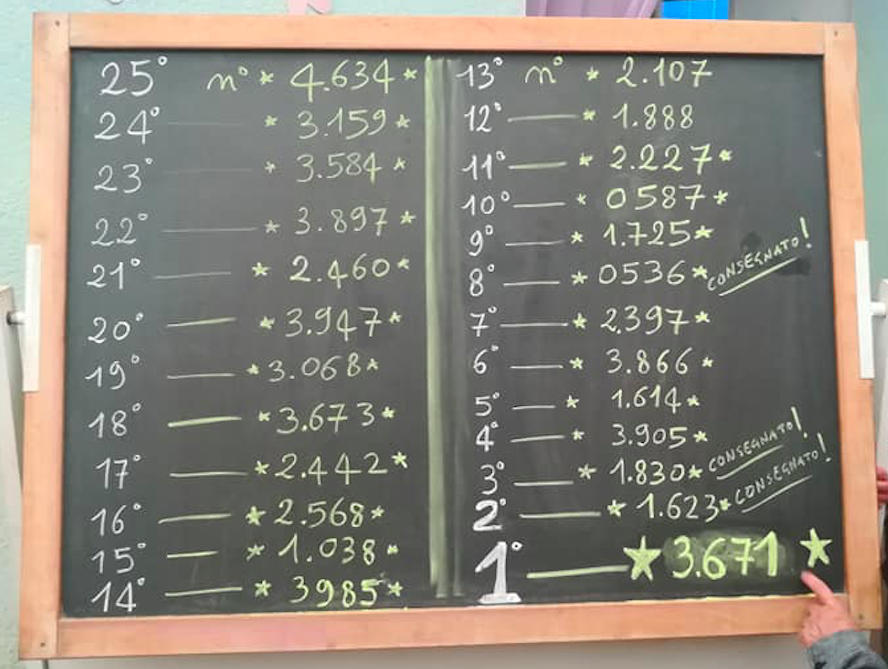 25° n° * 4.634 *
24° — * 3.159 *
23° — * 3.584 *
22° — * 3.897 *
21° — * 2.460 *
20° — * 3.947 *
19° — * 3.068 *
18° — * 3.673 *
17° — * 2.442 *
16° — * 2.568 *
15° — * 1.038 *
14° — * 3985 *
13° n° * 2.107
12° — * 1.888
11° — * 2.227 *
10° — * 0587 *
9° — * 1.725 *
8° — * 0536 * CONSEGNATO!
7° — * 2.397 *
6° — * 3.866 *
5° — * 1.614 *
4° — * 3.905 *
3° — * 1.830 * CONSEGNATO!
2° — * 1.623 * CONSEGNATO!
1° — ★ 3.671 ★